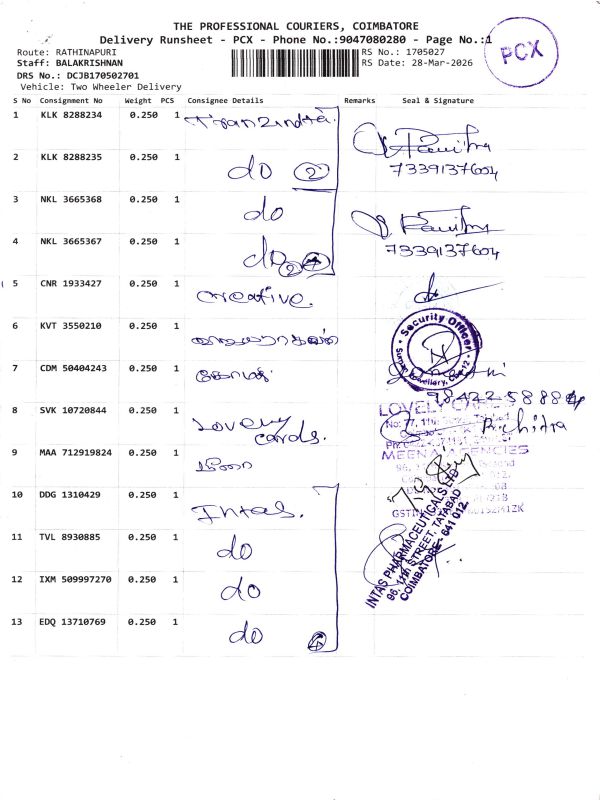 THE PROFESSIONAL COURIERS, COIMBATORE
Delivery Runsheet - PCX - Phone No.:9047080280 - Page No.:1
Route: RATHINAPURI
RS No.: 1705027
PCX
Staff: BALAKRISHNAN
RS Date: 28-Mar-2026
DRS No.: DCJB170502701
Vehicle: Two Wheeler Delivery
S No Consignment No Weight PCS Consignee Details Remarks Seal & Signature
1 KLK 8288234 0.250 1 Tranzindia.
2 KLK 8288235 0.250 1 do 2
7339137604
3 NKL 3665368 0.250 1 do
4 NKL 3665367 0.250 1 do 2
7339137604
5 CNR 1933427 0.250 1 creative.
6 KVT 3550210 0.250 1
Security Officer
7 CDM 50404243 0.250 1 கோமதி
98422 58884
8 SVK 10720844 0.250 1 Lovely cards.
LOVELY
9 MAA 712919824 0.250 1 மீனா
MEENA AGENCIES
10 DDG 1310429 0.250 1 Intas.
GSTIN
11 TVL 8930885 0.250 1 do
INTAS PHARMACEUTICALS LTD
96, 11th STREET, TATABAD
COIMBATORE - 641 012.
12 IXM 509997270 0.250 1 do
13 EDQ 13710769 0.250 1 do 4